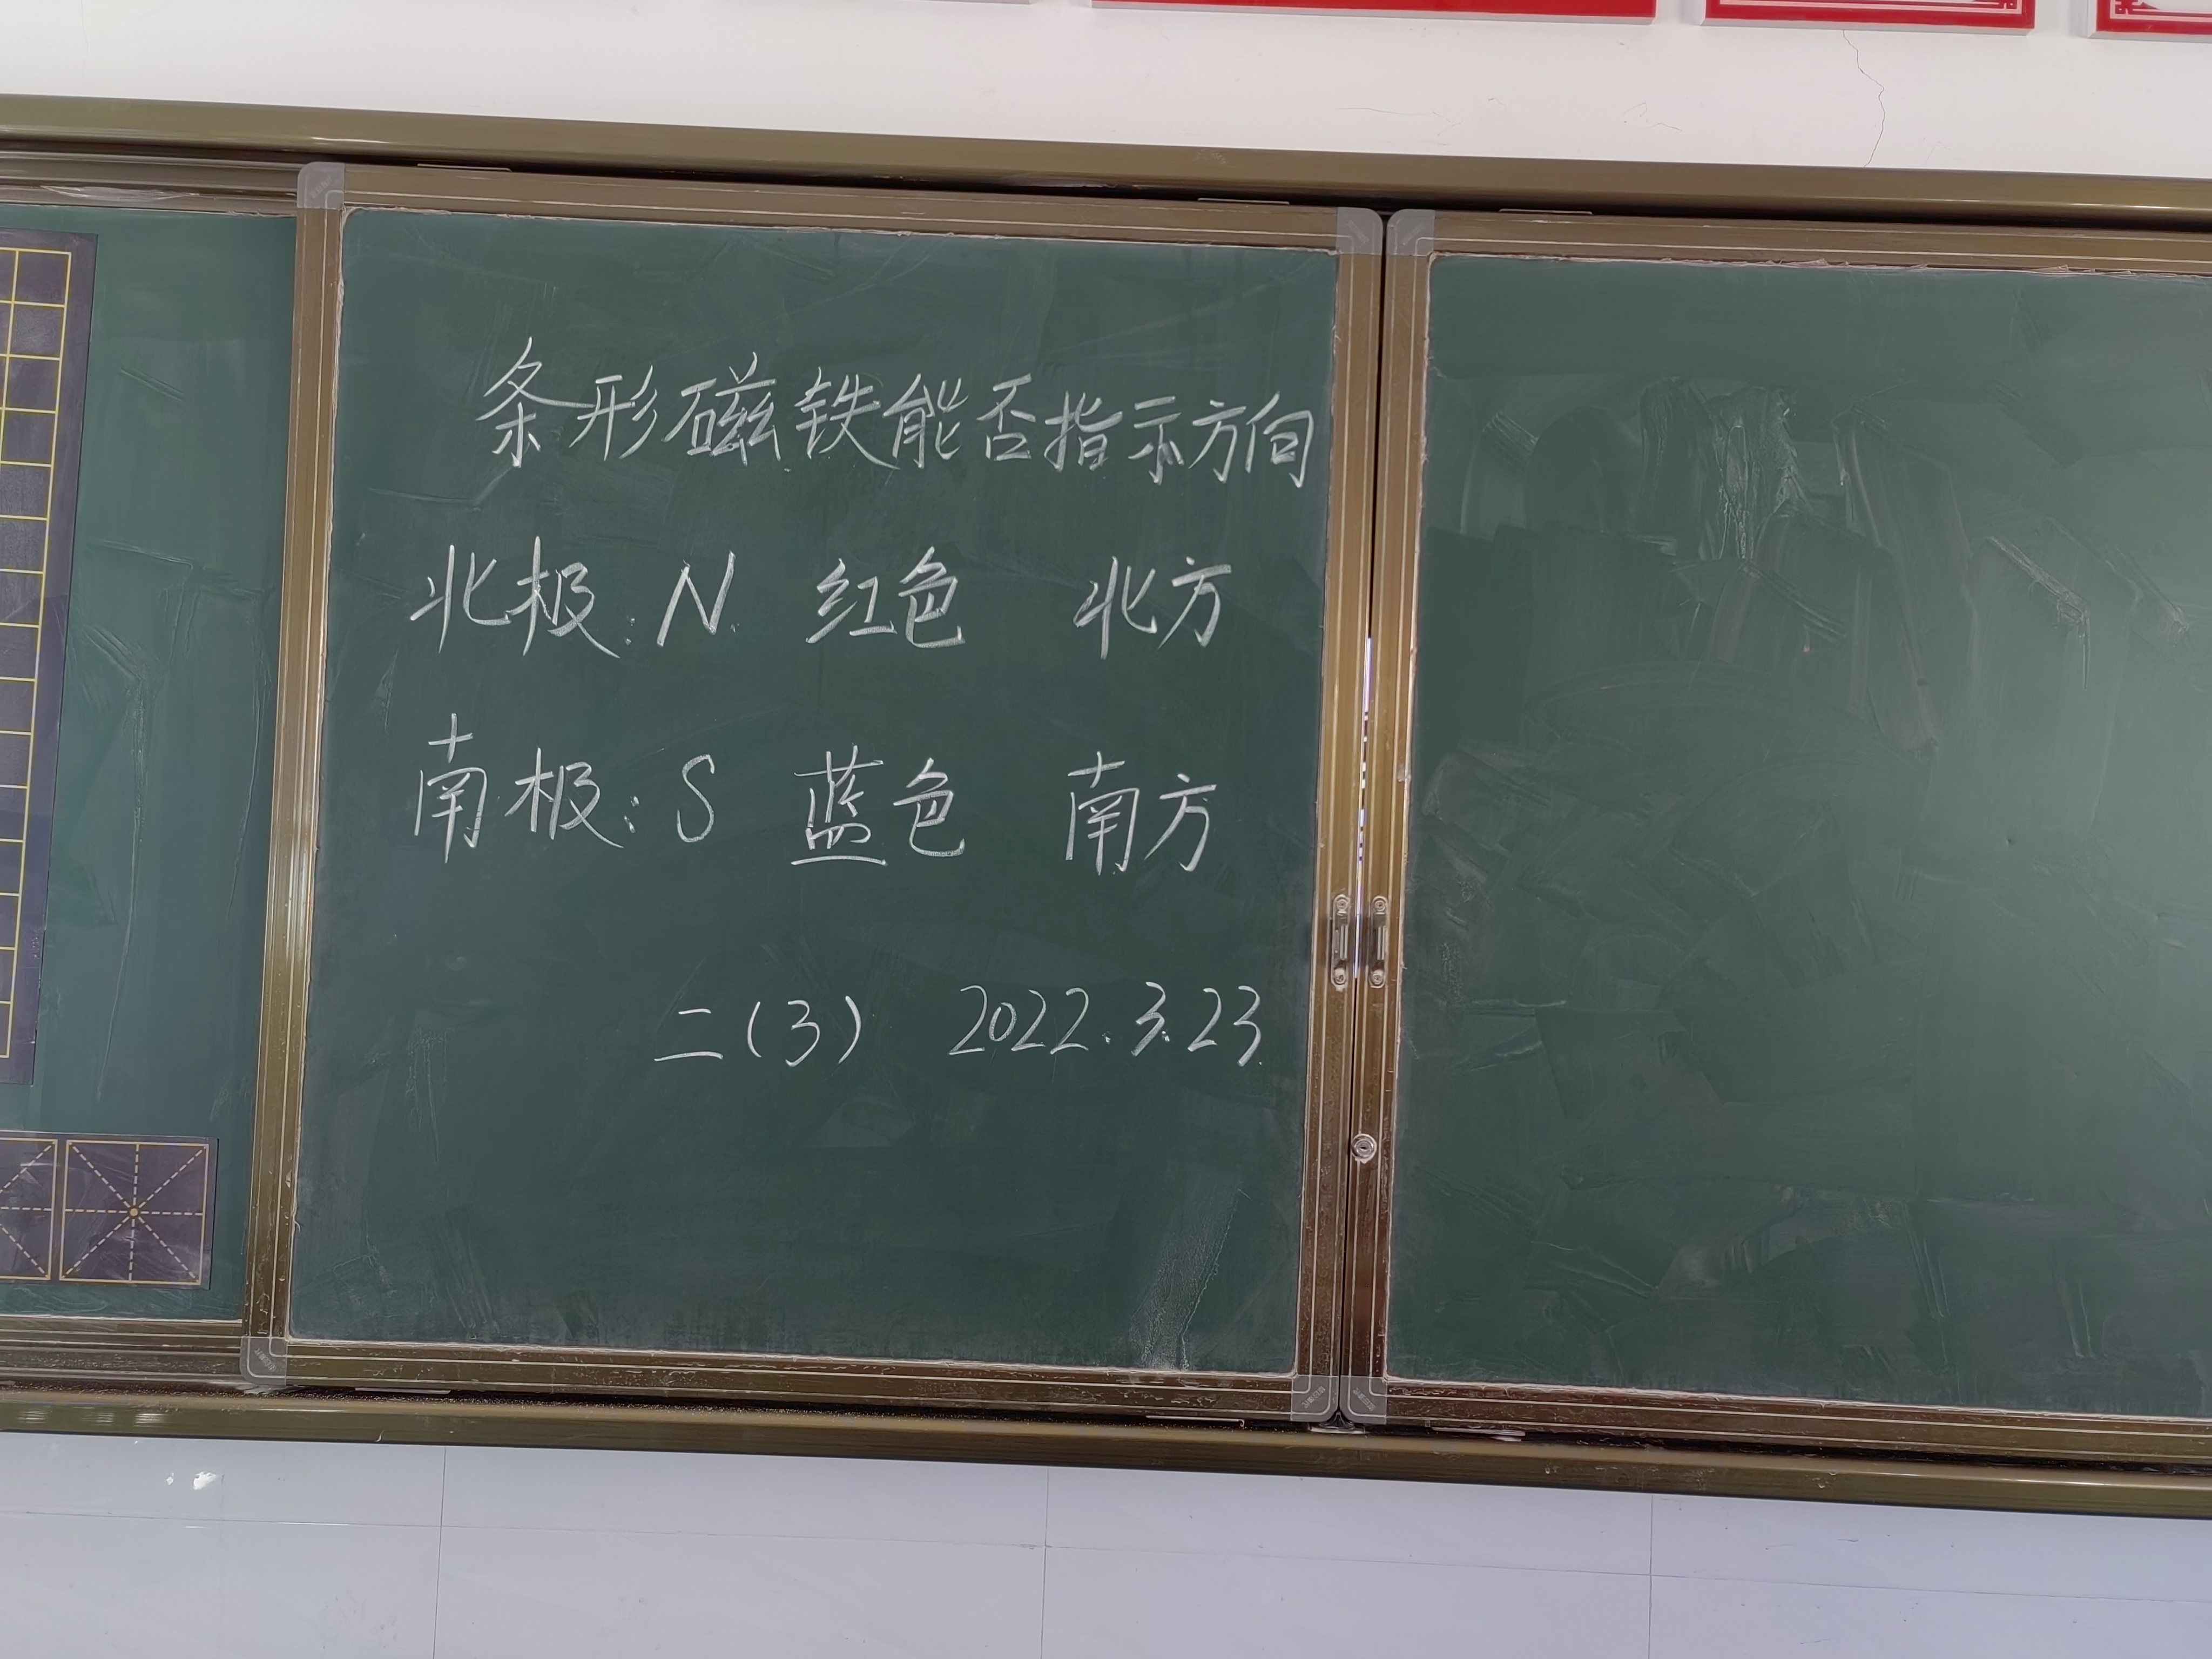 条形磁铁能否指示方向
北极：N 红色 北方
南极：S 蓝色 南方
二（3） 2022.3.23